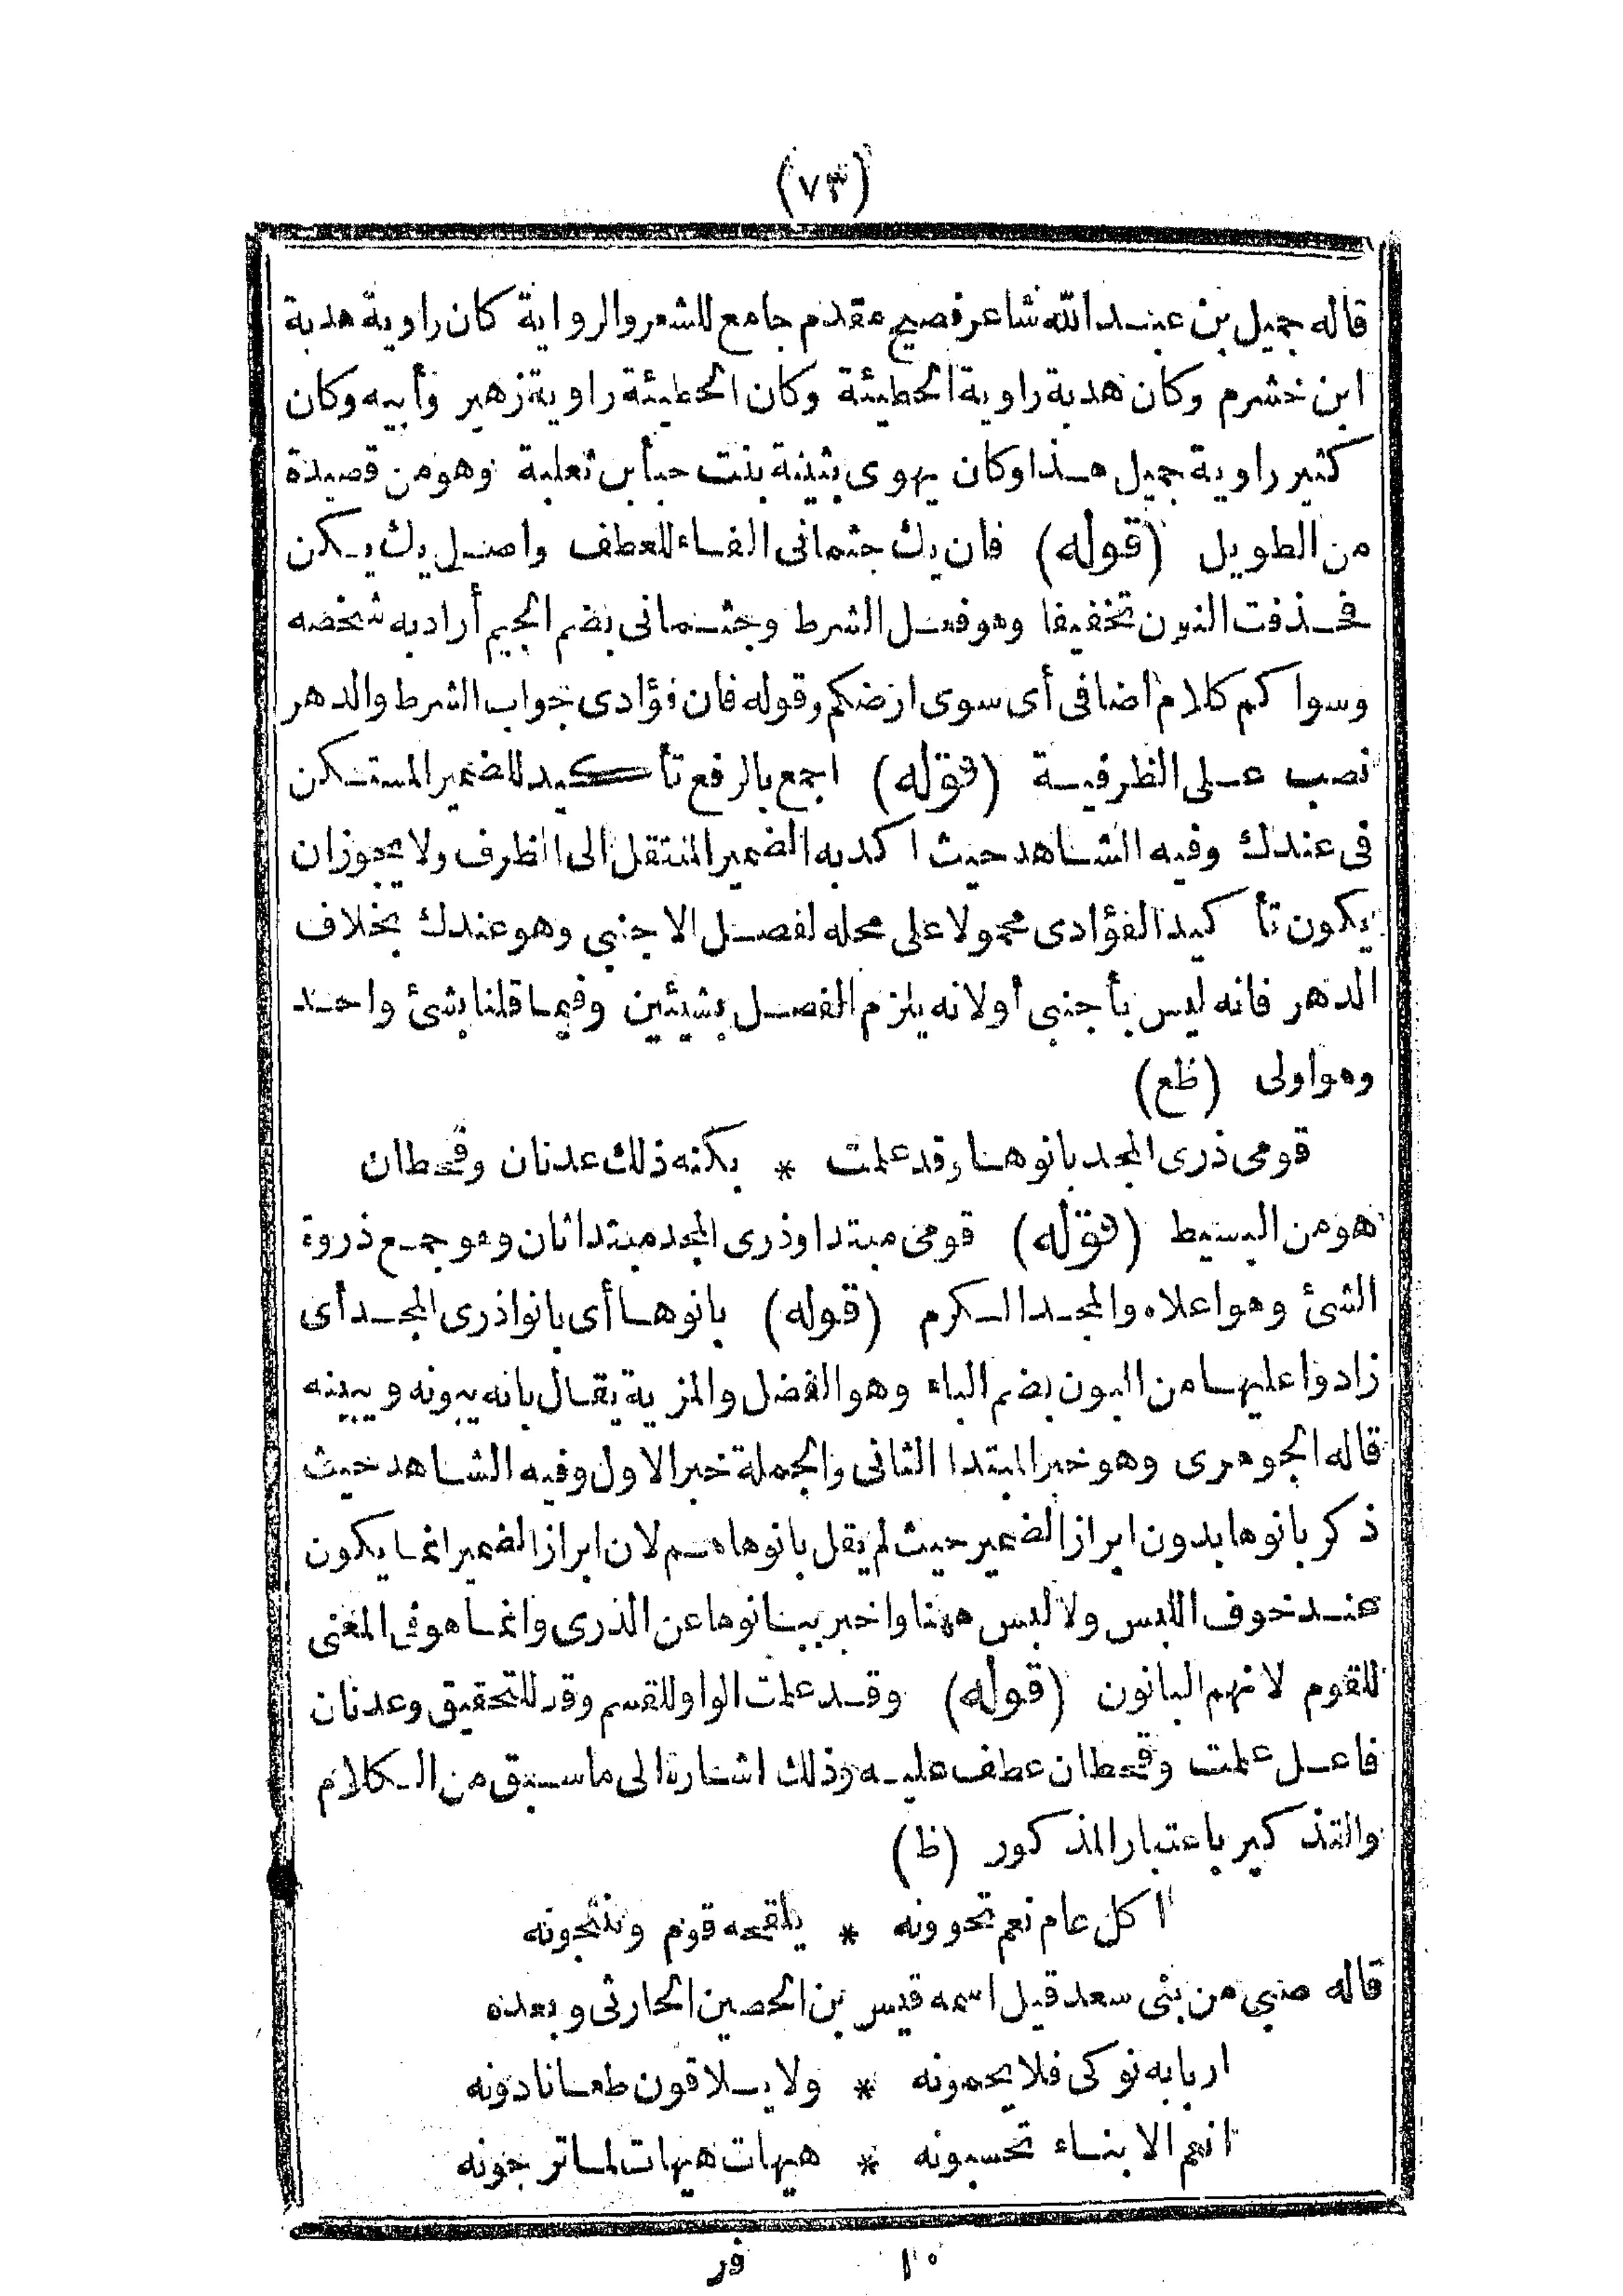 (٧٣)
قاله جميل بن عبد الله شاعر فصيح مقدم جامع للشعر والرواية كان راوية هدبة
ابن خشرم وكان هدبة راوية الحطيئة وكان الحطيئة راوية زهير وأبيه وكان
كثير راوية جميل هذا وكان يهوى بثينة بنت حبأ بن ثعلبة وهو من قصيدة
من الطويل (قوله) فان يك جثمانى الفاء للعطف واصل يك يكن
فحذفت النون تخفيفا وهو فعل الشرط وجثمانى بضم الجيم أراد به شخصه
وسواكم كلام اضافى أى سوى ارضكم وقوله فان فؤادى جواب الشرط والدهر
نصب على الظرفية (قوله) اجمع بالرفع تأكيد للضمير المستكن
فى عندك وفيه الشاهد حيث اكد به الضمير المنتقل الى الظرف ولا يجوز ان
يكون تأكيد الفؤادى محمولا على محله لفصل الاجنبى وهو عندك بخلاف
الدهر فانه ليس بأجنبى أولانه يلزم الفصل بشيئين وفيما قلنا بشئ واحد
وهو اولى (ظع)
قومى ذرى المجد بانوها وقد علمت * بكنه ذلك عدنان وقحطان
هو من البسيط (قوله) قومى مبتدا وذرى المجد مبتدا ثان وهو جمع ذروة
الشئ وهو اعلاه والمجد الكرم (قوله) بانوها أى بانوا ذرى المجد أى
زادوا عليها من البون بضم الباء وهو الفضل والمزية يقال بانه يبونه ويبينه
قاله الجوهرى وهو خبر المبتدا الثانى والجملة خبر الاول وفيه الشاهد حيث
ذكر بانوها بدون ابراز الضمير حيث لم يقل بانوها هم لان ابراز الضمير انما يكون
عند خوف اللبس ولا لبس ههنا واخبر ببانوها عن الذرى وانما هو فى المعنى
للقوم لانهم البانون (قوله) وقد علمت الواو للقسم وقد للتحقيق وعدنان
فاعل علمت وقحطان عطف عليه وذلك اشارة الى ما سبق من الكلام
والتذكير باعتبار المذكور (ظ)
اكل عام نعم تحوونه * يلقحه قوم وتنتجونه
قاله صبى من بنى سعد قيل اسمه قيس بن الحصين الحارثى وبعده
اربابه نوكى فلا يحمونه * ولا يلاقون طعانا دونه
انعم الابناء تحسبونه * هيهات هيهات لما ترجونه
١٠ فر